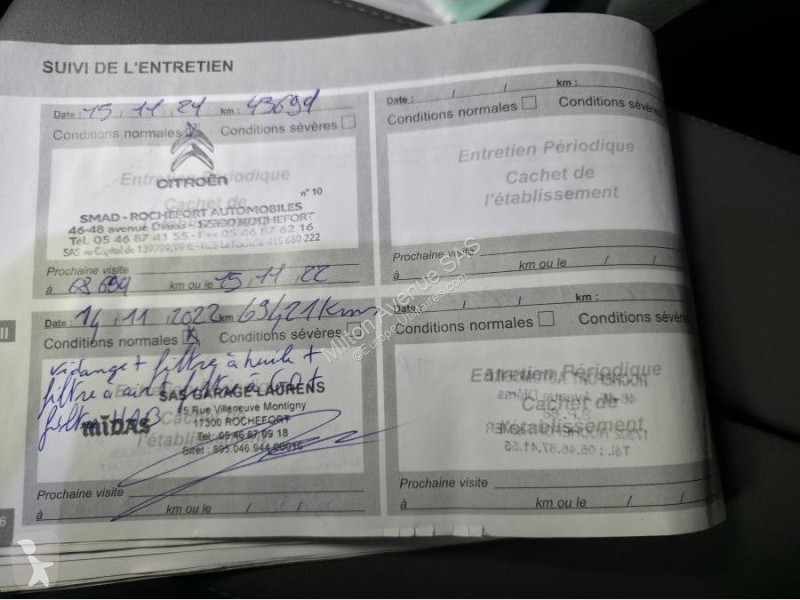 SUIVI DE L'ENTRETIEN
Date : 15 . 11 . 21 km : 43694
Conditions normales Conditions sévères
Entretien Périodique
CITROËN
n° 10
SMAD - ROCHEFORT AUTOMOBILES
46-48 avenue 17300 ROCHEFORT
Tél. 05 46 87 41 55 - Fax 05 46 87 62 16
SAS au Capital de
Prochaine visite
à 68 694 km ou le 15 , 11 , 22
Date : 14 , 11 , 2022 km : 69421 Km
Conditions normales X Conditions sévères
vidange + filtre à huile +
filtre à air + filtre à G.O +
SAS GARAGE LAURENS
MIDAS
15 Rue Villeneuve Montigny
17300 ROCHEFORT
Tel. 05 46 87 09 18
Siret : 895 046 944 00016
l'établissement
Prochaine visite
à km ou le / /
Date : / / km :
Conditions normales Conditions sévères
Entretien Périodique
Cachet de
l'établissement
Prochaine visite
à km ou le / /
Date : / / km :
Conditions normales Conditions sévères
Entretien Périodique
Cachet de
l'établissement
Prochaine visite
à km ou le / /
Milton Avenue SAS
©Europe-Militaires.com